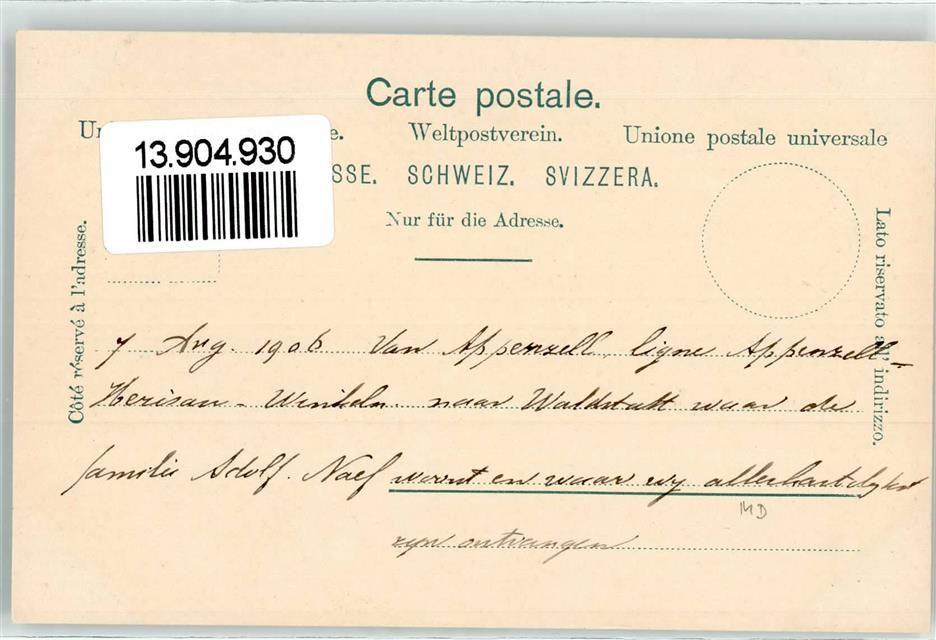 Carte postale.
Un e. Weltpostverein. Unione postale universale
13.904.930
SSE. SCHWEIZ. SVIZZERA.
Nur für die Adresse.
Côté réservé à l'adresse.
Lato riservato all' indirizzo.
7 Aug. 1906 Van Appenzell, ligne Appenzell-
Herisau - Winkeln naar Waldstatt waar de
familie Adolf. Naef woont en waar wij allerhartelijkst
zijn ontvangen